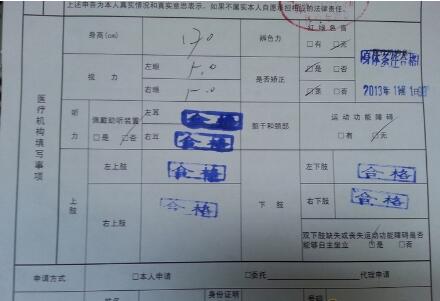 上述申告为本人真实情况和真实意思表示，如果不属实本人自愿承担相应的法律责任。
身高(cm) 170 辨色力 红绿色盲
□有 □无
视力 左眼 5.0 是否矫正 □是 □否 身体条件合格
右眼 5.0 □是 □否 2013年1月1日
医疗机构填写事项
听力 佩戴助听装置 □是 □否 左耳 合格 躯干和颈部 运动功能障碍
右耳 合格 □有 □无
上肢 左上肢 合格 下肢 左下肢 合格
右上肢 合格 右下肢 合格
双下肢缺失或丧失运动功能障碍是否
能够自主坐立 □是 □否
申请方式 □本人申请 □委托 代理申请
身份证明 号码